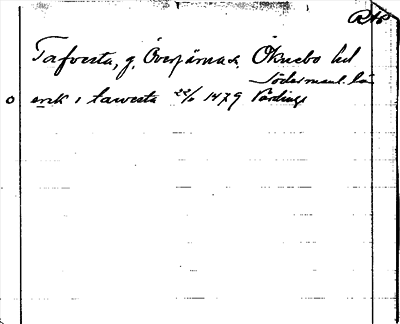 RAp
Tafvesta, g. Överjärna s. Öknebo hd
Södermanl. län
o enk i tawesta 22/1 1479 Vårdinge